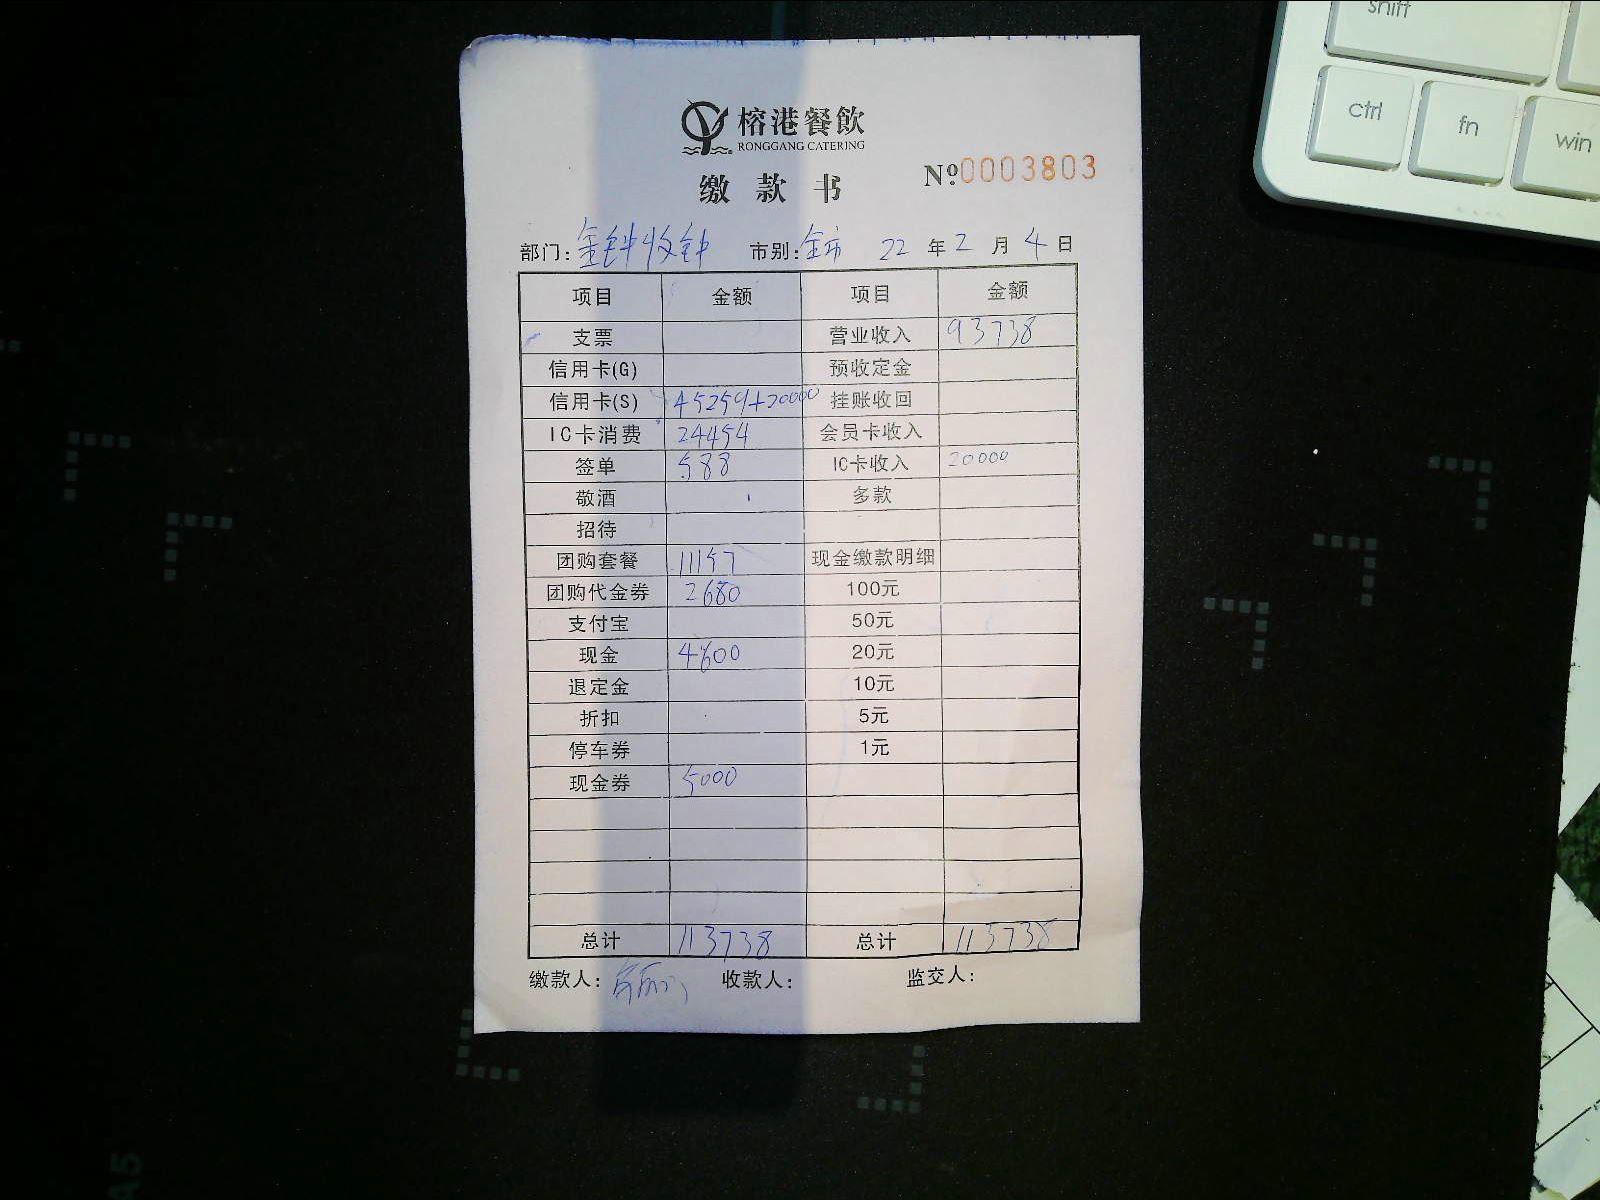 shift
ctrl
fn
win
榕港餐飲
RONGGANG CATERING
缴款书
Nº0003803
部门: 金钟收钟 市别: 全市 22 年 2 月 4 日
项目 金额 项目 金额
支票 营业收入 93738
信用卡(G) 预收定金
信用卡(S) 45259+20000 挂账收回
IC卡消费 24454 会员卡收入
签单 588 IC卡收入 20000
敬酒 多款
招待
团购套餐 11157 现金缴款明细
团购代金券 2680 100元
支付宝 50元
现金 4600 20元
退定金 10元
折扣 5元
停车券 1元
现金券 5000
总计 113738 总计 113738
缴款人: 收款人: 监交人:
A5